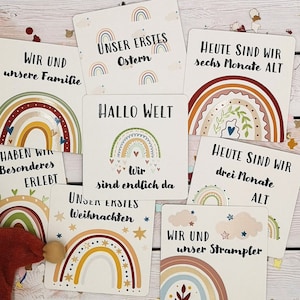 Unser erstes
Ostern
Wir und
unsere Familie
Heute sind wir
sechs Monate alt
Hallo Welt
Wir
sind endlich da
haben wir
Besonderes
erlebt
Heute sind wir
drei Monate
alt
Unser erstes
Weihnachten
Wir und
unser Strampler